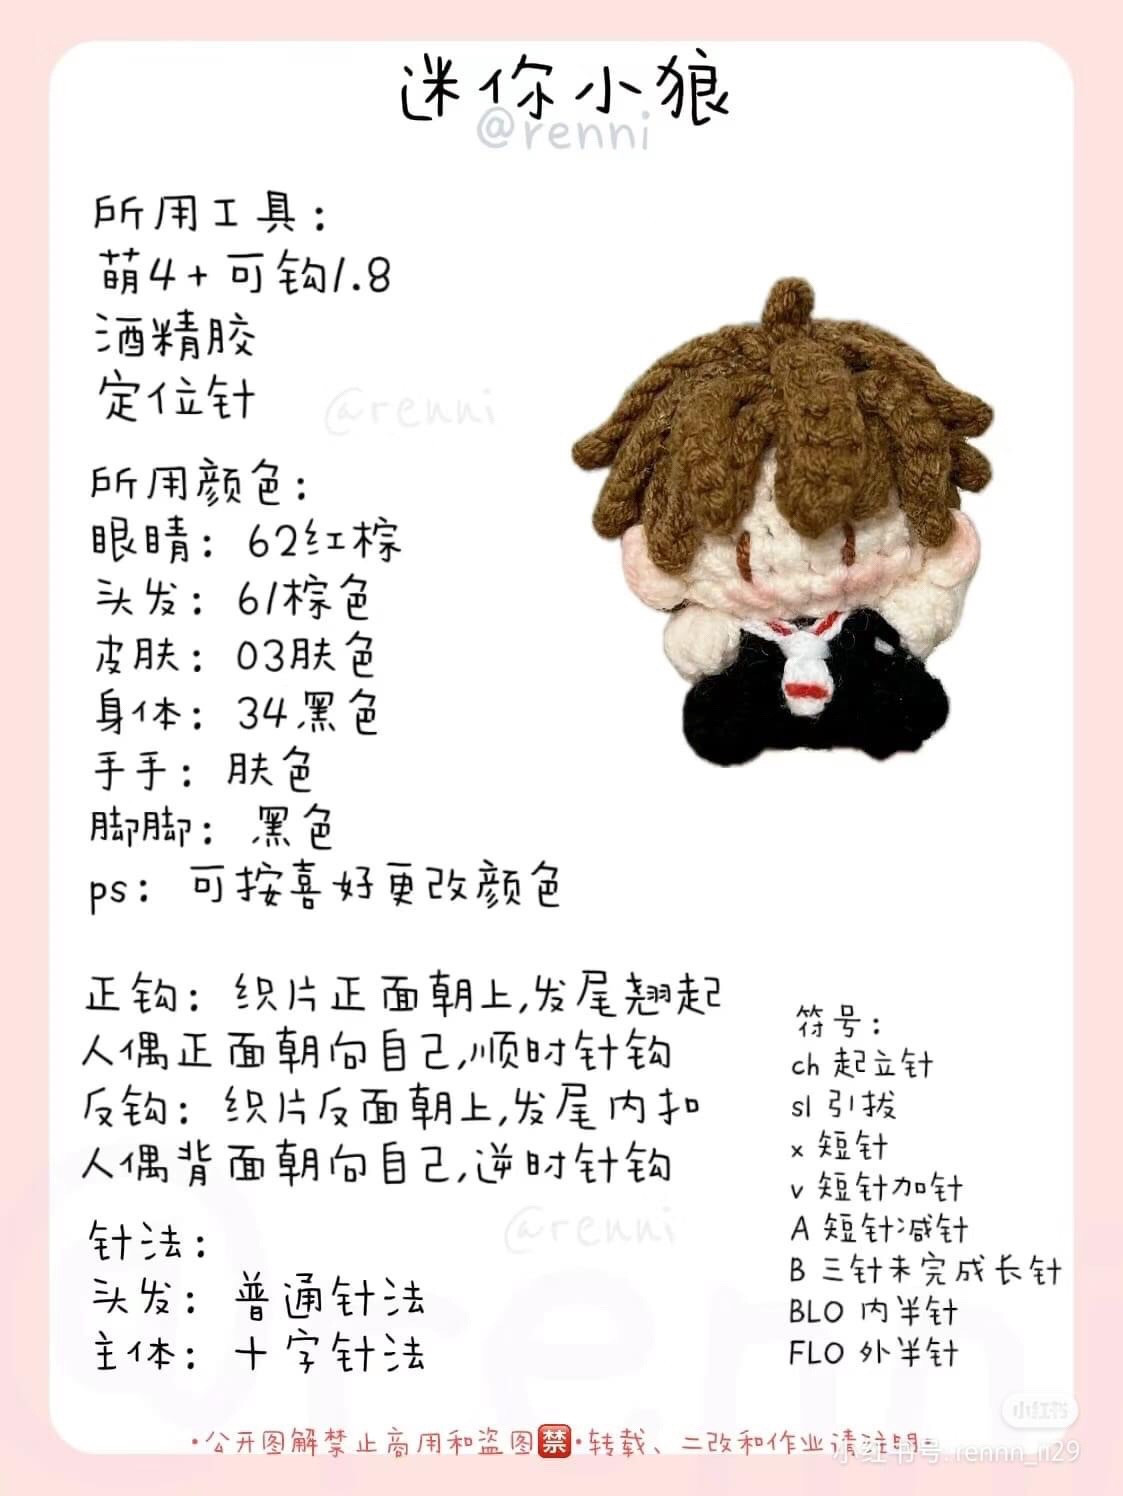 迷你小狼
@renni
所用工具：
萌4+可钩1.8
酒精胶
定位针
@renni
所用颜色：
眼睛：62红棕
头发：61棕色
皮肤：03肤色
身体：34黑色
手手：肤色
脚脚：黑色
ps：可按喜好更改颜色
正钩：织片正面朝上,发尾翘起
人偶正面朝向自己,顺时针钩
反钩：织片反面朝上,发尾内扣
人偶背面朝向自己,逆时针钩
@renni
针法：
头发：普通针法
主体：十字针法
符号：
ch 起立针
sl 引拔
x 短针
v 短针加针
A 短针减针
B 三针未完成长针
BLO 内半针
FLO 外半针
小红书
·公开图解禁止商用和盗图🈲·转载、二改和作业请注明
小红书号:rennn_n29